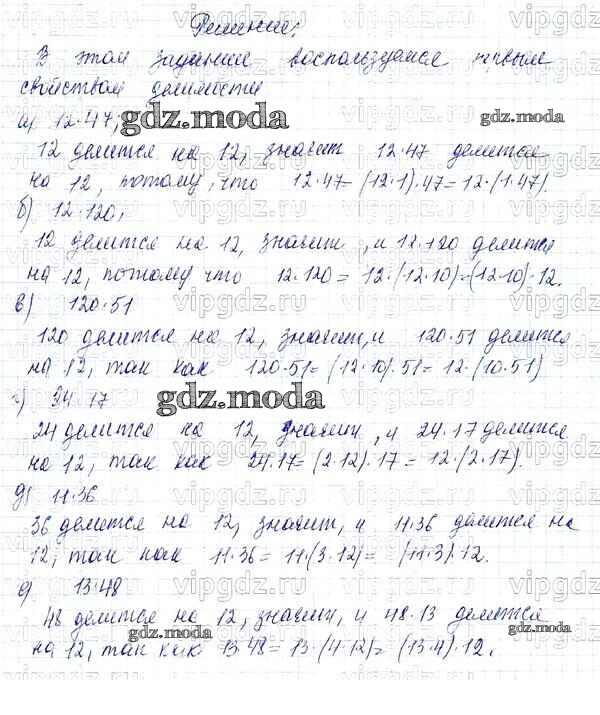 Решение:
В этом задании воспользуемся первым
свойством делимости
а) 12·47;
gdz.moda
gdz.moda
12 делится на 12, значит 12·47 делится
на 12, потому, что 12·47=(12·1)·47=12·(1·47).
б) 12·120;
12 делится на 12, значит, и 12·120 делится
на 12, потому что 12·120 = 12·(12·10)=(12·10)·12.
в) 120·51
120 делится на 12, значит, и 120·51 делится
на 12, так как 120·51=(12·10)·51=12·(10·51)
г) 34·17
gdz.moda
24 делится на 12, значит, и 24·17 делится
на 12, так как 24·17=(2·12)·17=12·(2·17).
д) 11·36
36 делится на 12, значит, и 11·36 делится на
12, так как 11·36=11·(3·12)= (11·3)·12.
е) 13·48
48 делится на 12, значит, и 48·13 делится
gdz.moda
gdz.moda
на 12, так как 13·48=13·(4·12)=(13·4)·12.
vipgdz.ru